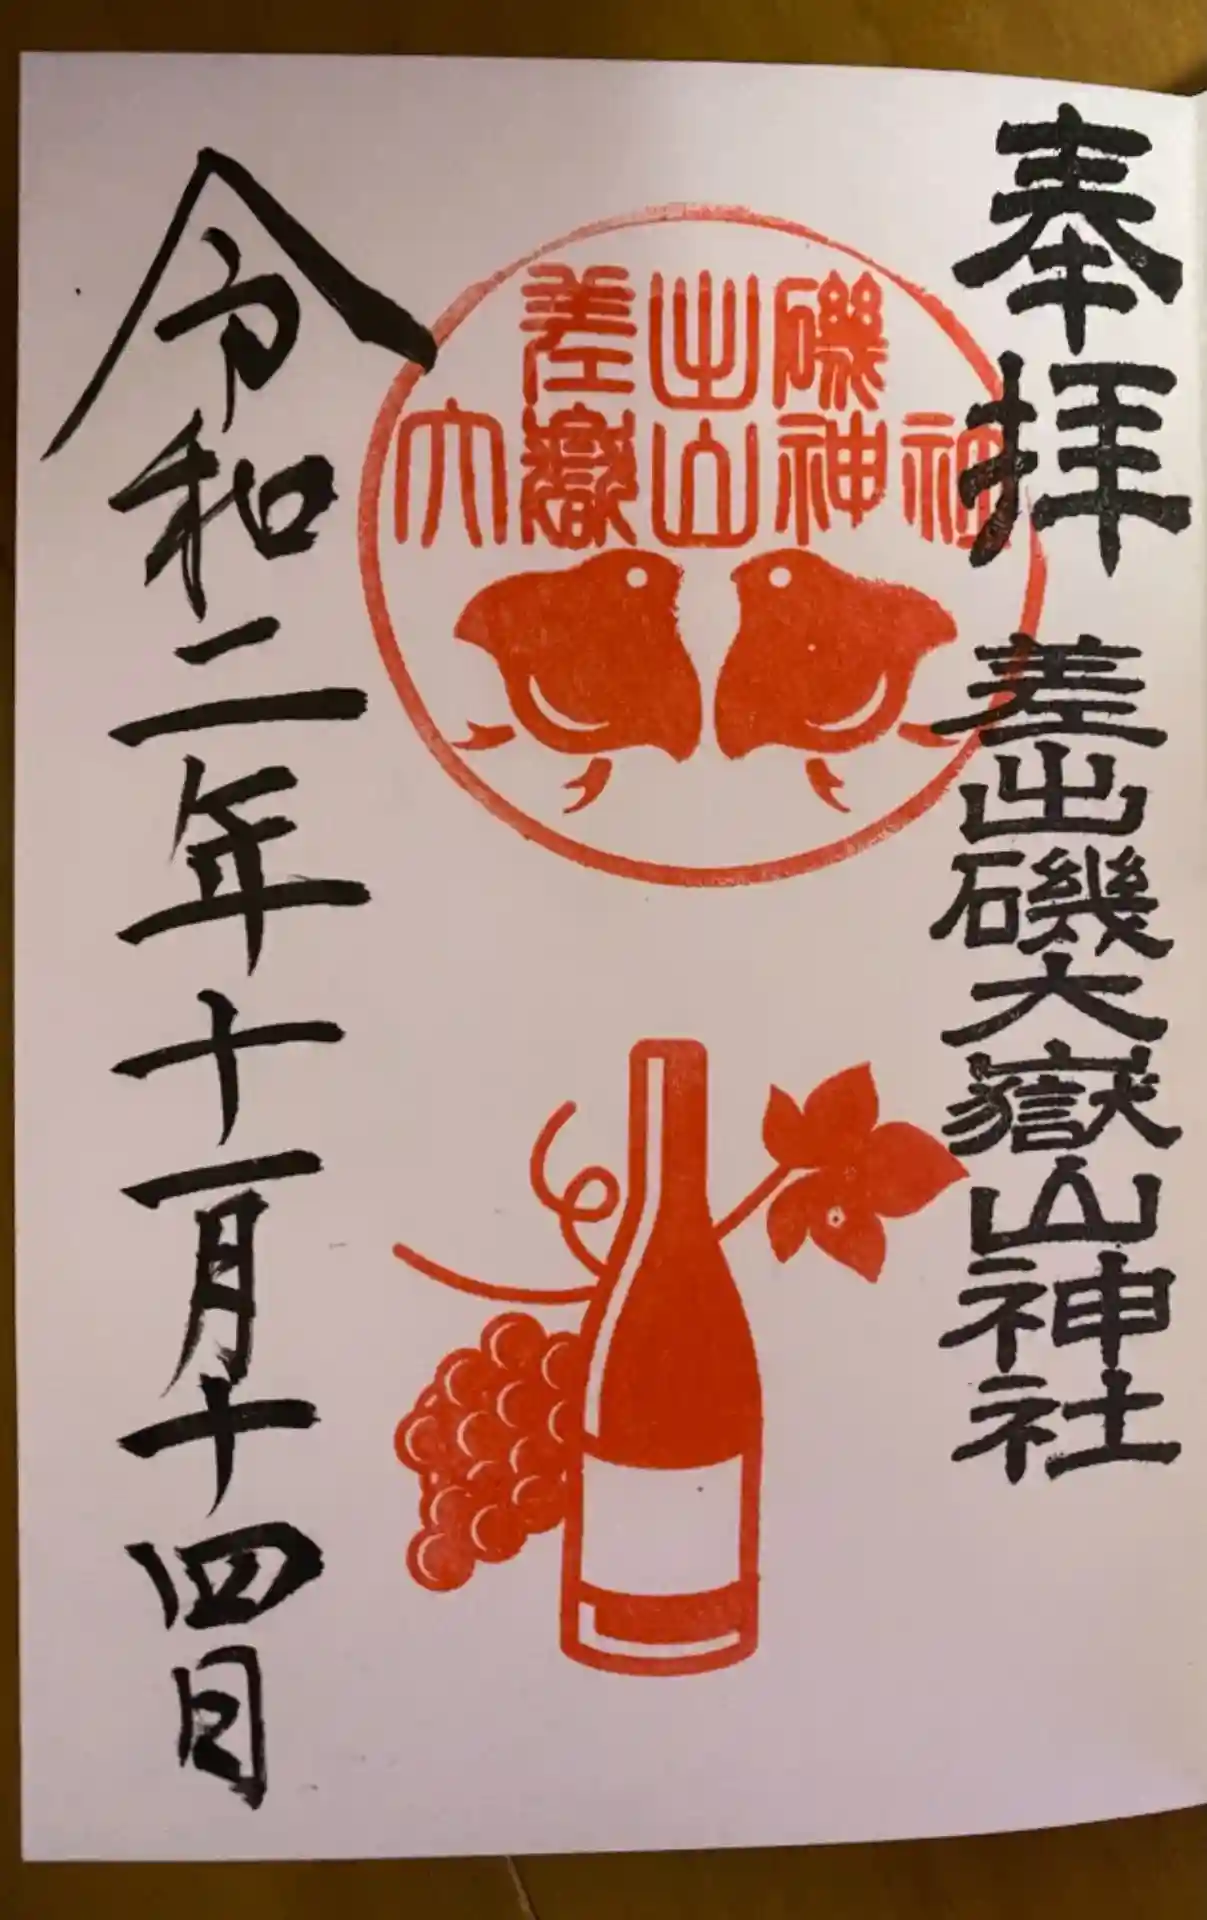 奉拝
差出磯大嶽山神社
差出磯
大嶽山神社
令和二年十一月十四日